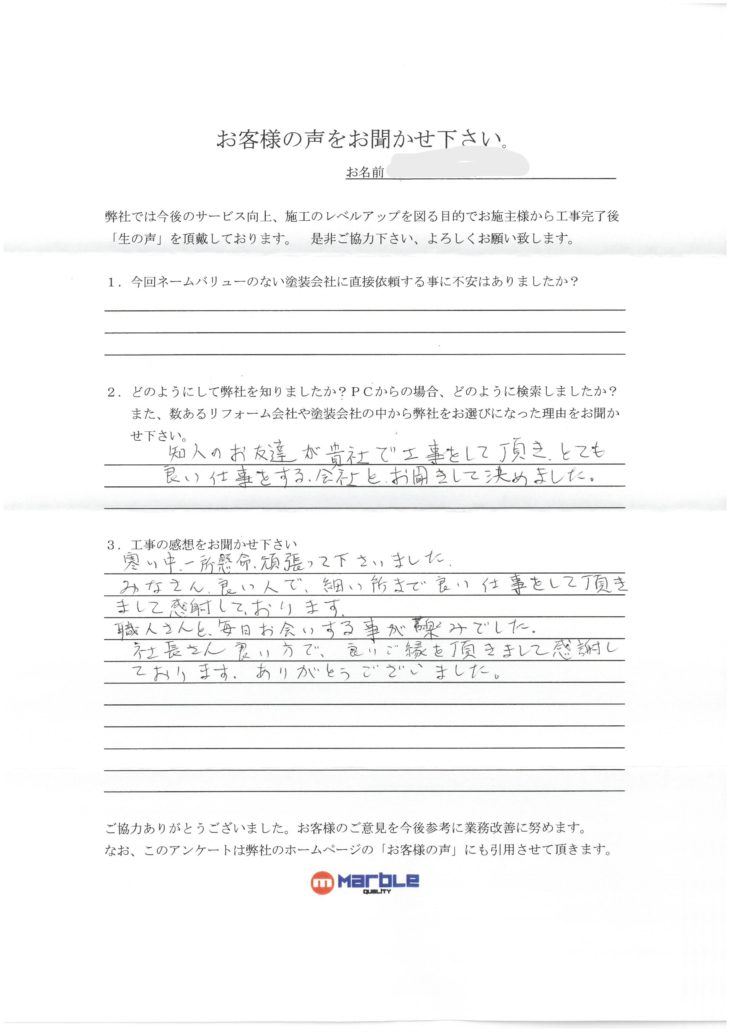 お客様の声をお聞かせ下さい。
お名前
弊社では今後のサービス向上、施工のレベルアップを図る目的でお施主様から工事完了後
「生の声」を頂戴しております。　是非ご協力下さい、よろしくお願い致します。
1．今回ネームバリューのない塗装会社に直接依頼する事に不安はありましたか？
2．どのようにして弊社を知りましたか？ＰＣからの場合、どのように検索しましたか？
また、数あるリフォーム会社や塗装会社の中から弊社をお選びになった理由をお聞か
せ下さい。
知人のお友達が貴社で工事をして頂き、とても
良い仕事をする、会社と、お聞きして決めました。
3．工事の感想をお聞かせ下さい
寒い中、一所懸命、頑張って下さいました、
みなさん、良い人で、細い所まで良い仕事をして頂き
まして感謝して、おります、
職人さんと、毎日お会いする事が楽みでした、
社長さん良い方で、良いご縁を頂きまして感謝し
ております、ありがとうございました。
ご協力ありがとうございました。お客様のご意見を今後参考に業務改善に努めます。
なお、このアンケートは弊社のホームページの「お客様の声」にも引用させて頂きます。
m MARBLE
QUALITY